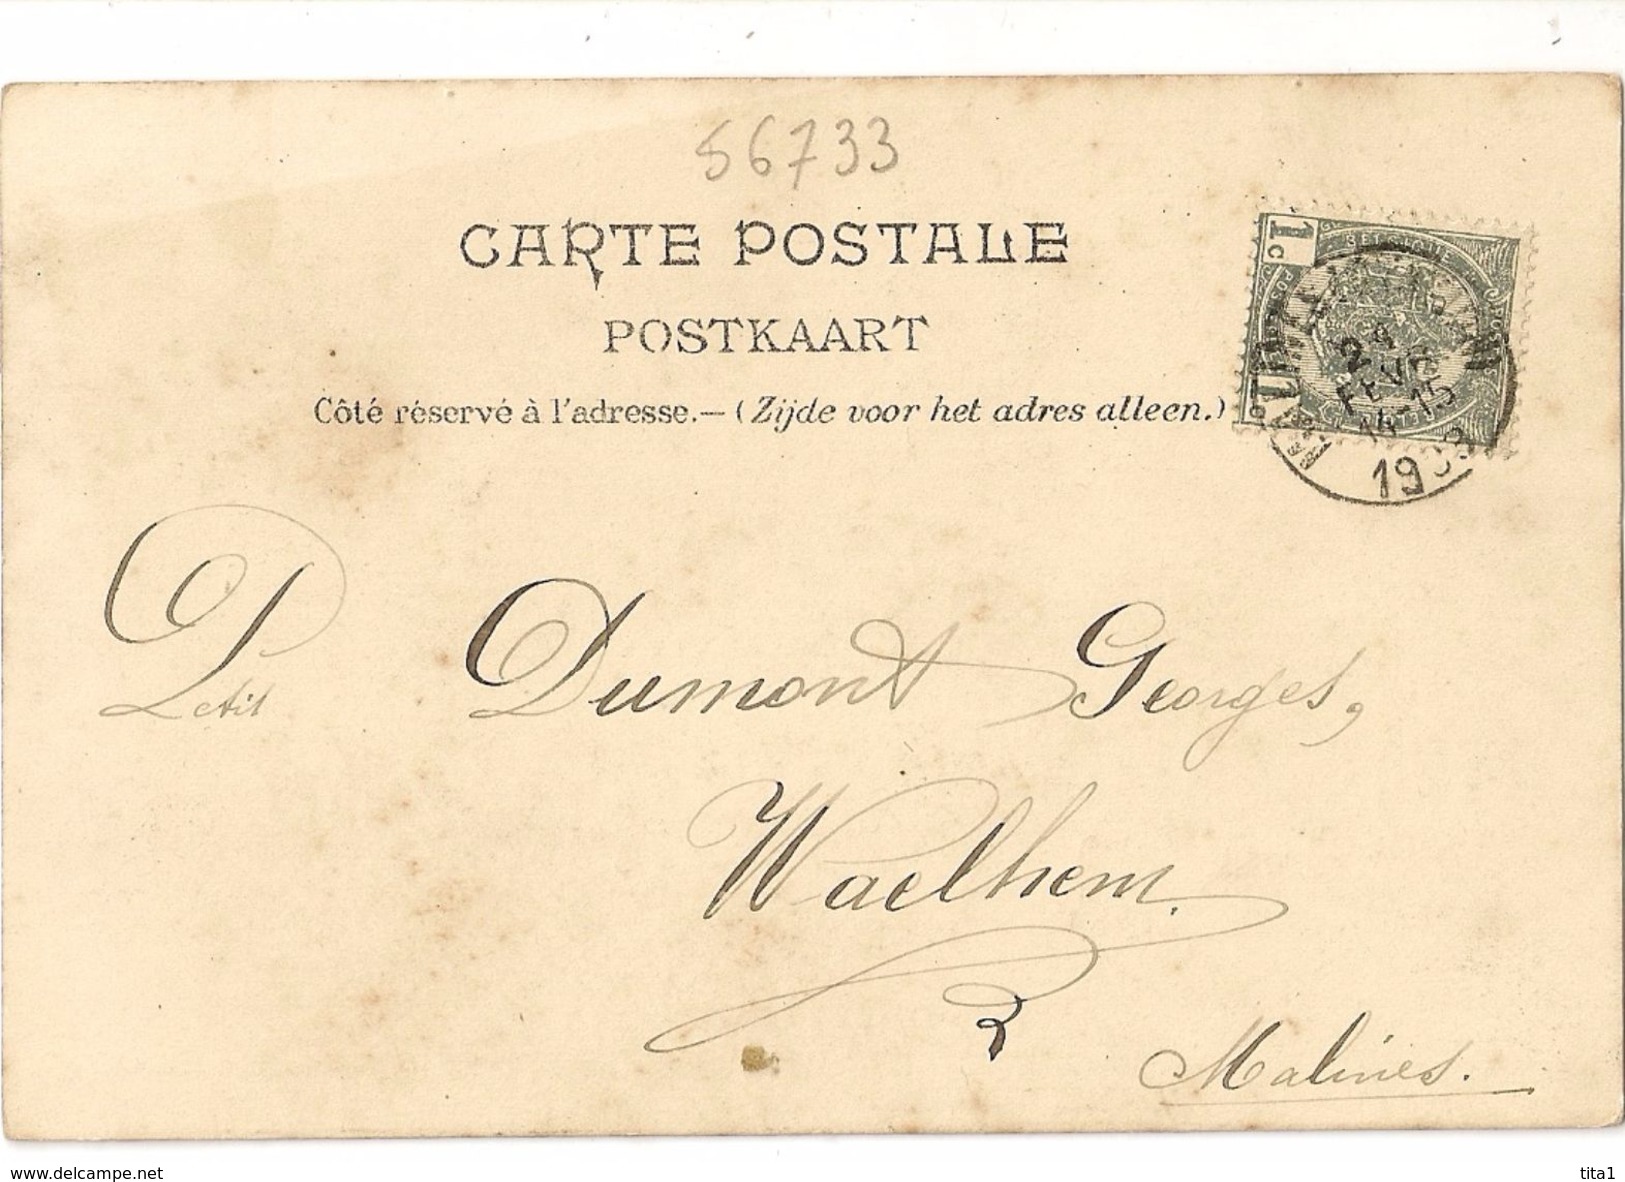 56733
CARTE POSTALE
POSTKAART
Côté réservé à l'adresse.— (Zijde voor het adres alleen.)
1 c
24
FEVR
14-15
Petit Dumont Georges,
Waelhem.
Malines.
www.delcampe.net
tita1